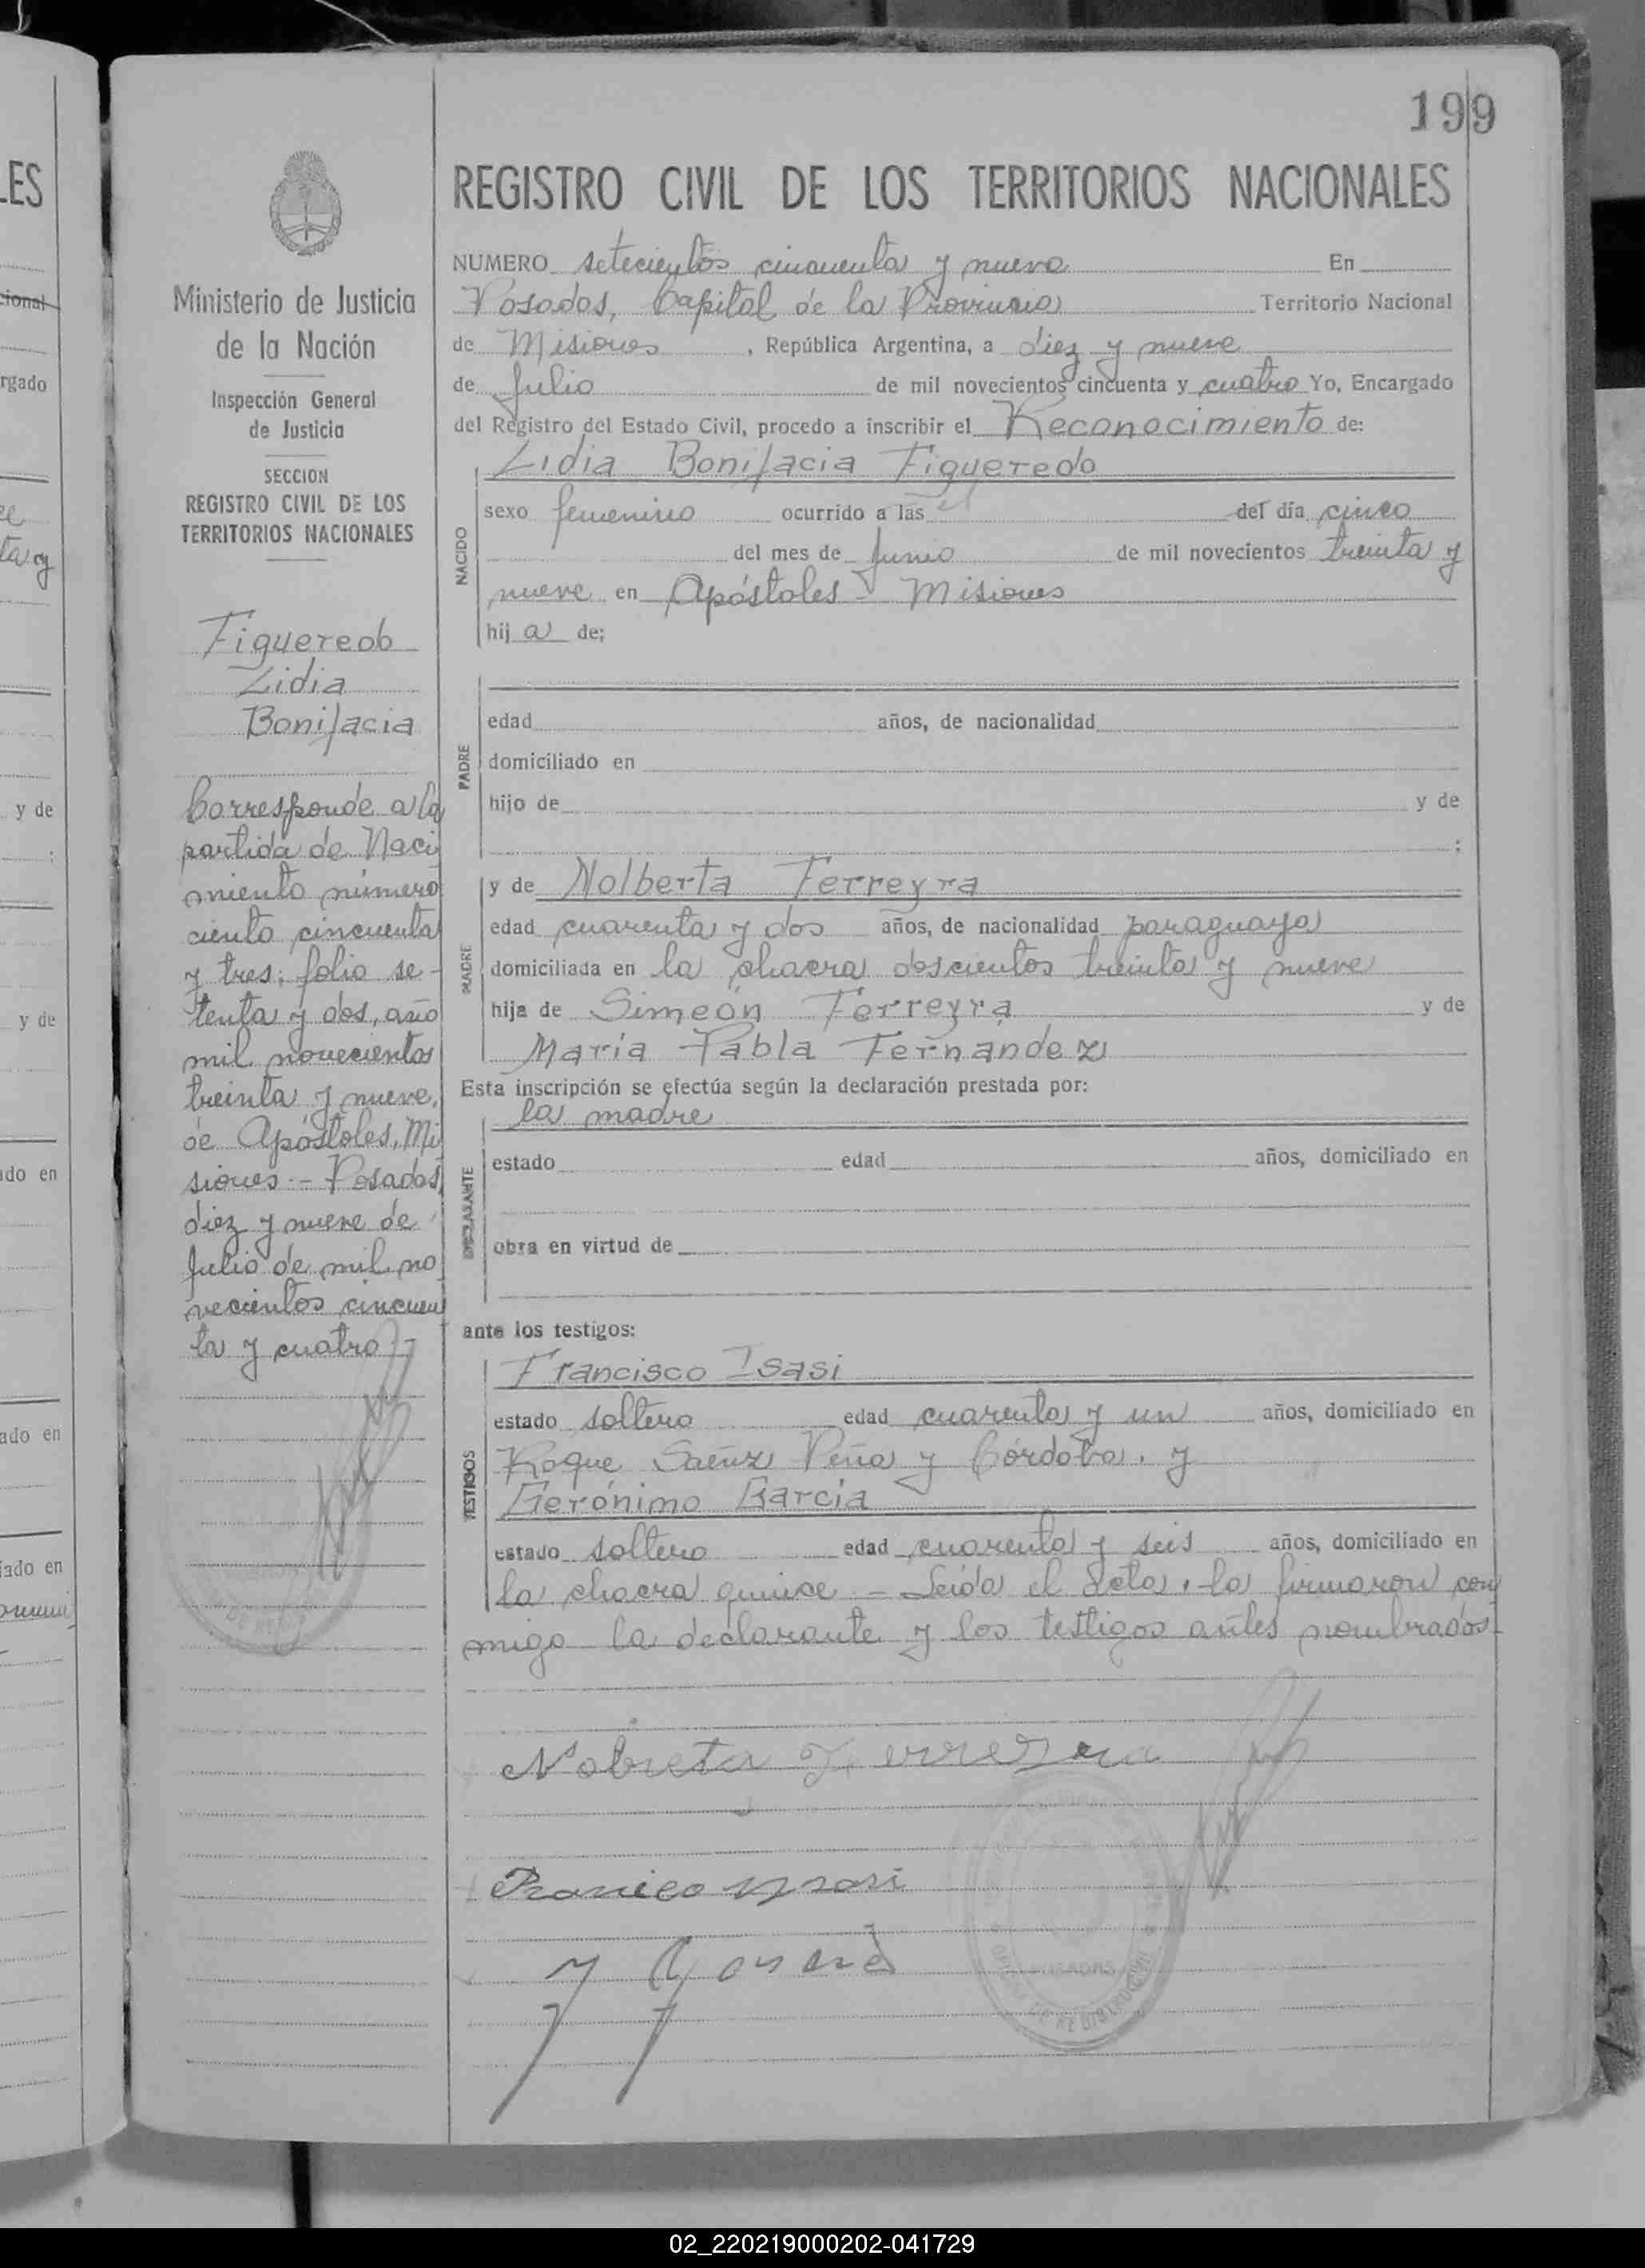 199
REGISTRO CIVIL DE LOS TERRITORIOS NACIONALES
Ministerio de Justicia
de la Nación
Inspección General
de Justicia
SECCION
REGISTRO CIVIL DE LOS
TERRITORIOS NACIONALES
Figueredo
Lidia
Bonifacia
Corresponde a la
partida de Naci
miento número
ciento cincuenta
y tres, folio se-
tenta y dos, año
mil novecientos
treinta y nueve,
de Apóstoles, Mi
siones.- Posadas,
diez y nueve de
Julio de mil no
vecientos cincuen
ta y cuatro.-
NUMERO setecientos cincuenta y nueve En
Posadas, Capital de la Provincia Territorio Nacional
de Misiones, República Argentina, a diez y nueve
de Julio de mil novecientos cincuenta y cuatro Yo, Encargado
del Registro del Estado Civil, procedo a inscribir el Reconocimiento de:
Lidia Bonifacia Figueredo
NACIDO
sexo femenino ocurrido a las el del día cinco
del mes de Junio de mil novecientos treinta y
nueve en Apóstoles - Misiones
hija de;
PADRE
edad años, de nacionalidad
domiciliado en
hijo de y de
;
MADRE
y de Nolberta Ferreyra
edad cuarenta y dos años, de nacionalidad paraguaya
domiciliada en la chacra doscientos treinta y nueve
hija de Simeón Ferreyra y de
María Pabla Fernandez
Esta inscripción se efectúa según la declaración prestada por:
DECLARANTE
la madre
estado edad años, domiciliado en
obra en virtud de
ante los testigos:
TESTIGOS
Francisco Isasi
estado soltero edad cuarenta y un años, domiciliado en
Roque Saénz Peña y Córdoba. y
Gerónimo García
estado soltero edad cuarenta y seis años, domiciliado en
la chacra quince - Leída el Acta, la firmaron con
migo la declarante y los testigos antes nombrados.-
Nobreta Ferreyra
POSADAS
LES
cional
rgado
y de
y de
ado en
ado en
iado en
02_220219000202-041729